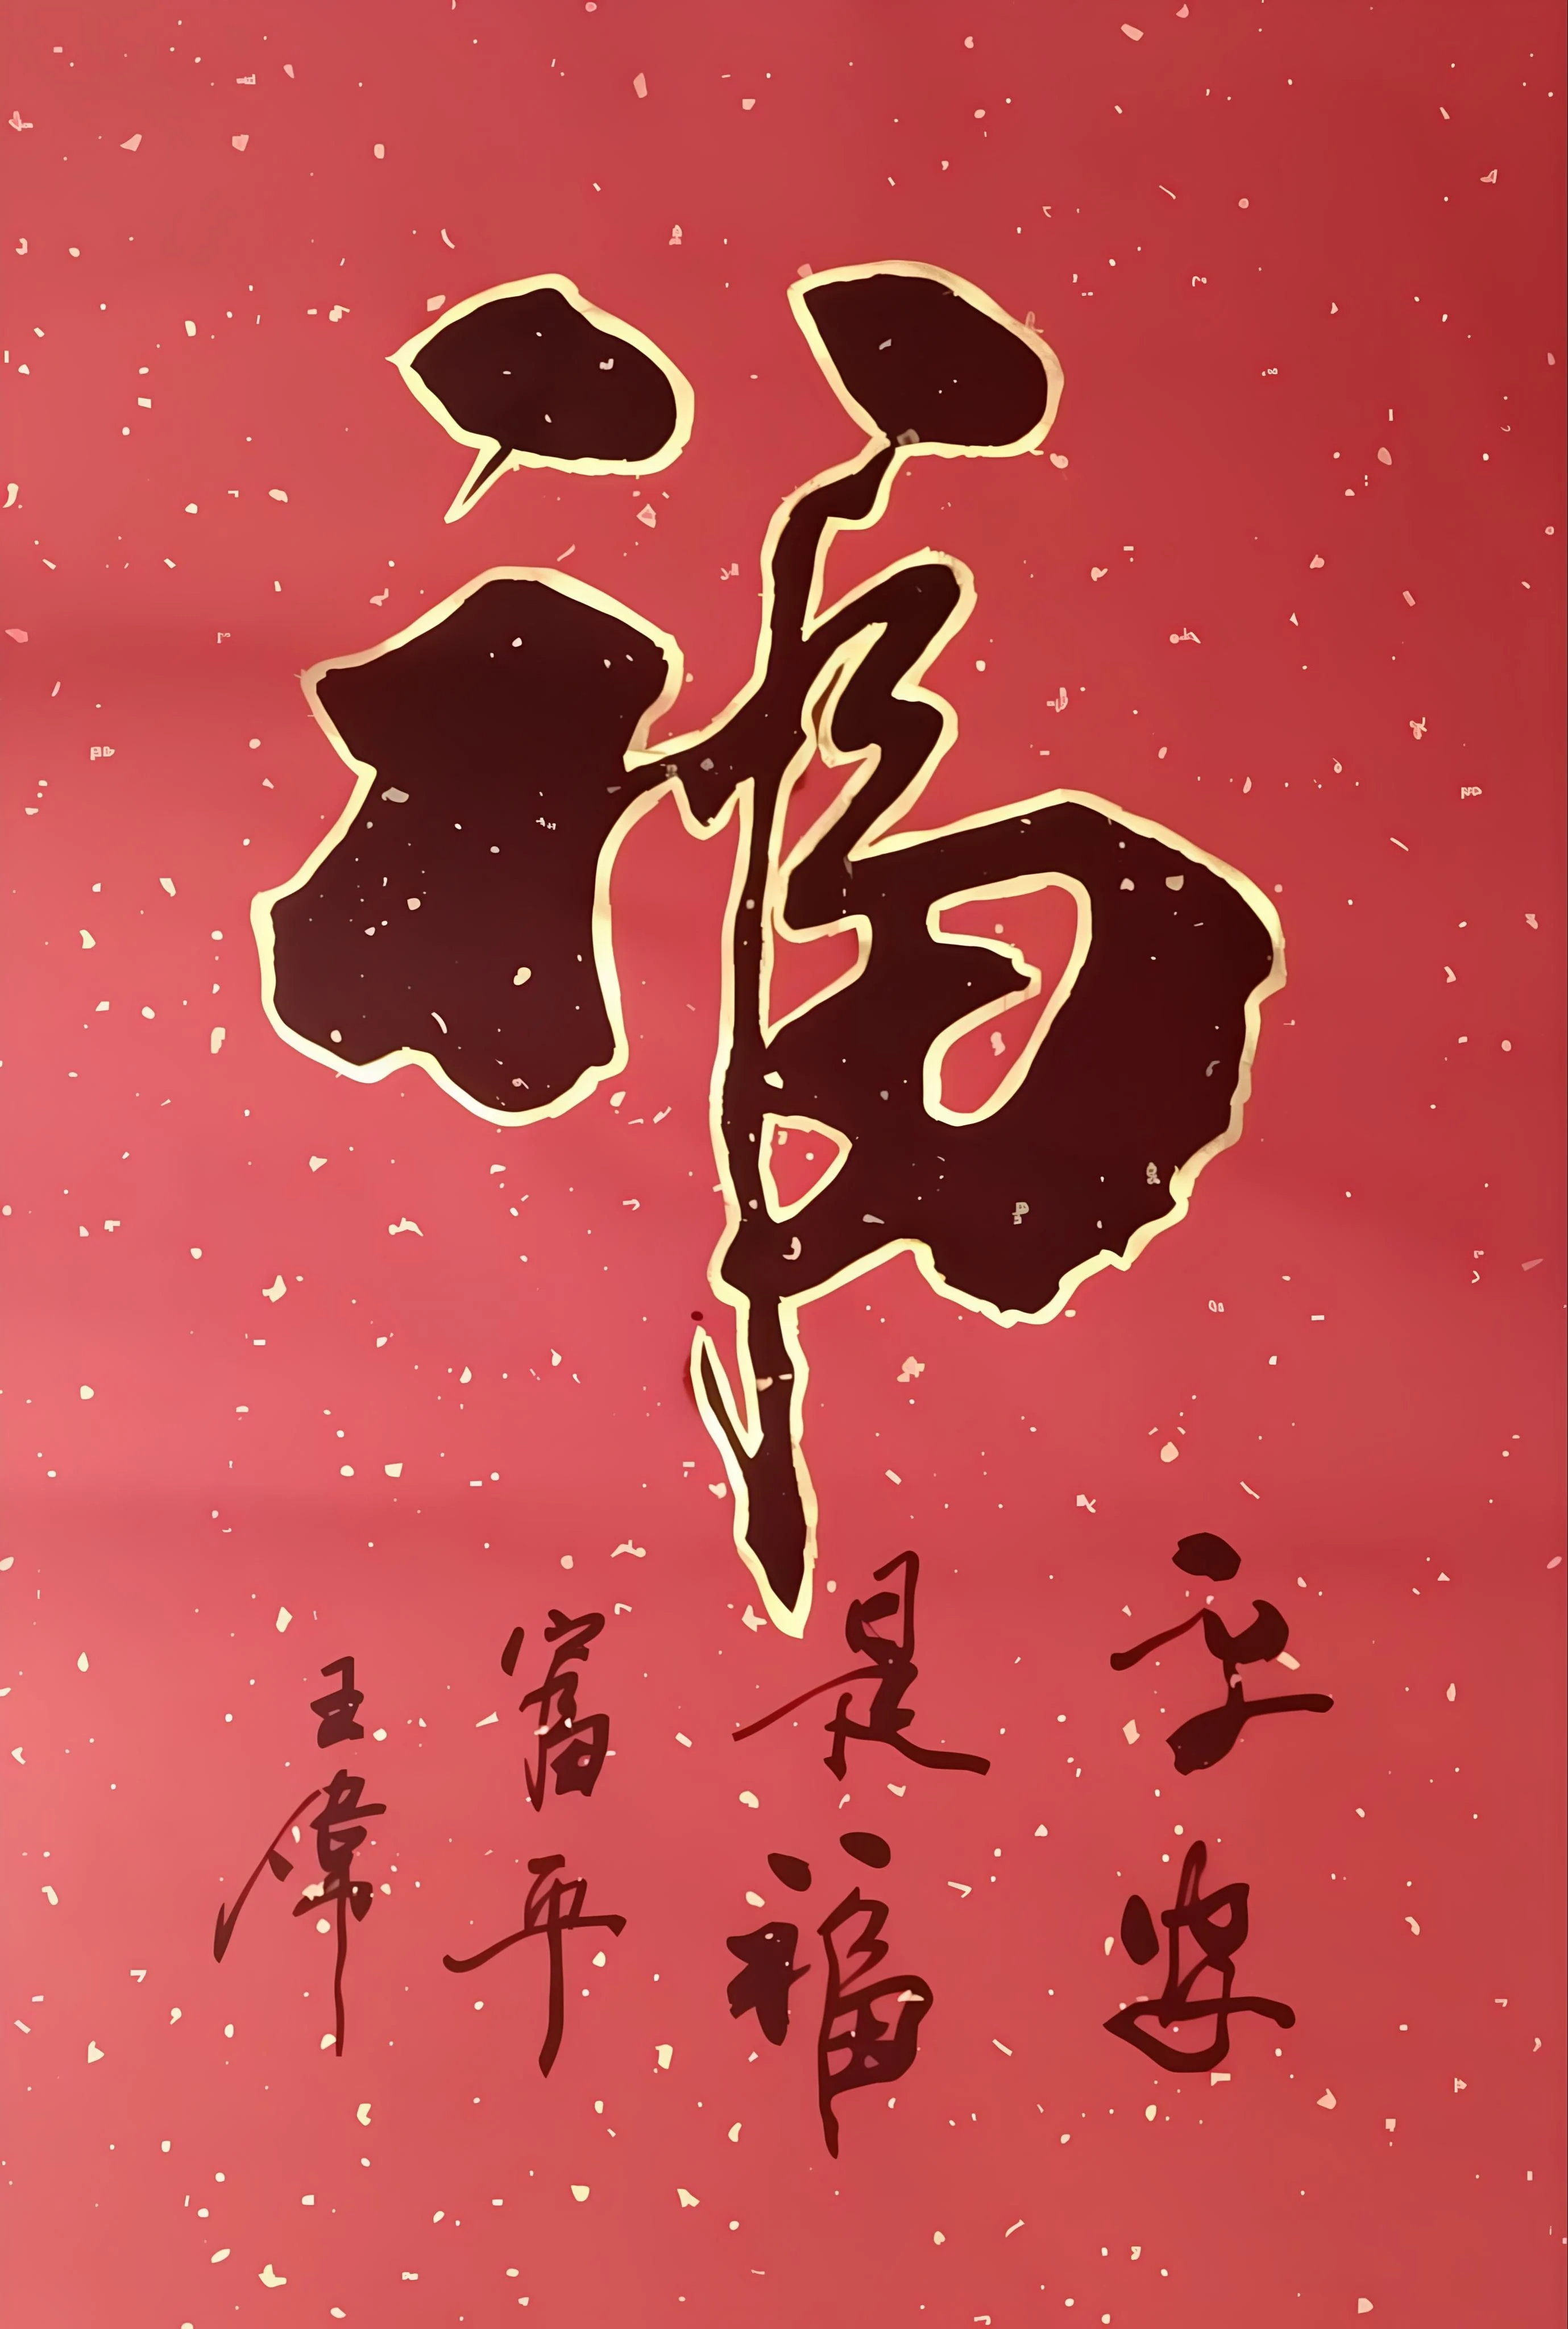 福
平安
是福
富平
王偉